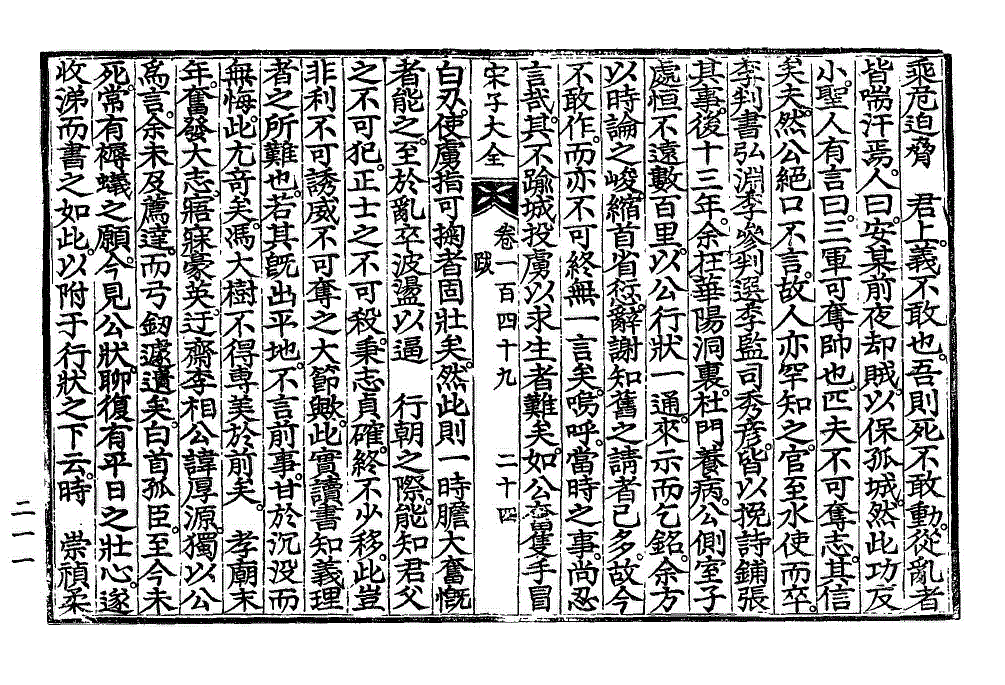 乘危迫脅 君上。義不敢也。吾則死不敢動。從亂者
皆喘汗焉。人曰安某前夜却賊。以保孤城。然此功反
小。聖人有言曰。三軍可奪帥也。匹夫不可奪志。其信
矣夫。然公絕口不言。故人亦罕知之。官至水使而卒。
李判書弘淵李參判選李監司秀彦。皆以挽詩鋪張
其事。後十三年。余在華陽洞裏。杜門養病。公側室子
處恒不遠數百里。以公行狀一通。來示而乞銘。余方
以時論之峻。縮首省愆。辭謝知舊之請者已多。故今
不敢作。而亦不可終無一言矣。嗚呼。當時之事。尚忍
言哉。其不踰城投虜以求生者難矣。如公奮隻手冒
宋子大全 卷一百四十九 跋 二十四
白刃。使虜指可掬者固壯矣。然此則一時膽大奮慨
者能之。至於亂卒波盪以逼 行朝之際。能知君父
之不可犯。正士之不可殺。秉志貞確。終不少移。此豈
非利不可誘威不可奪之大節歟。此實讀書知義理
者之所難也。若其旣出平地。不言前事。甘於沉没而
無悔。此尤奇矣。馮大樹不得專美於前矣。 孝廟末
年。奮發大志。寤寐豪英。迂齋李相公諱厚源。獨以公
爲言。余未及薦達。而弓釰遽遺矣。白首孤臣。至今未
死。常有褥蟻之願。今見公狀。聊復有平日之壯心。遂
收涕而書之如此。以附于行狀之下云。時 崇禎柔
二一一